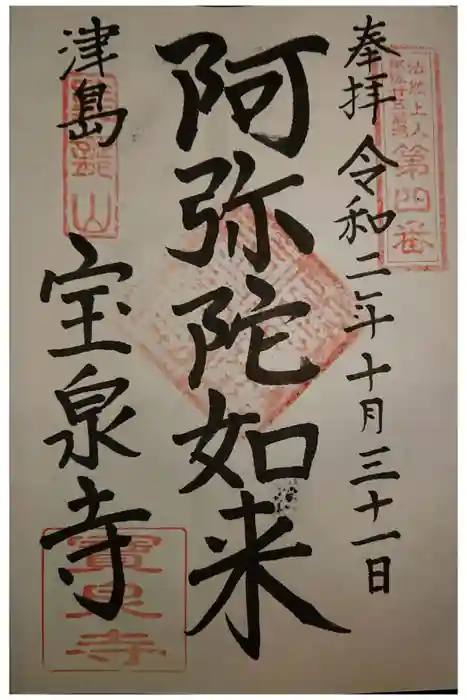 奉拝 令和二年十月三十一日
法然上人
第四番
阿弥陀如来
津島 宝泉寺
寶泉寺